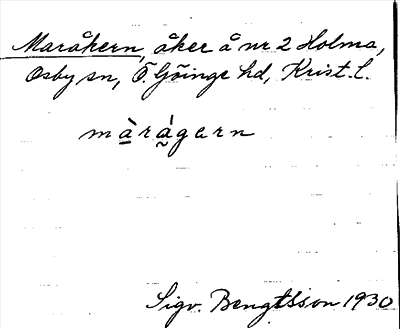 Maråkern, åker å nr 2 Holma,
Osby sn, Ö. Göinge hd, Krist. l.
màrágærn
Sigv. Bengtsson 1930